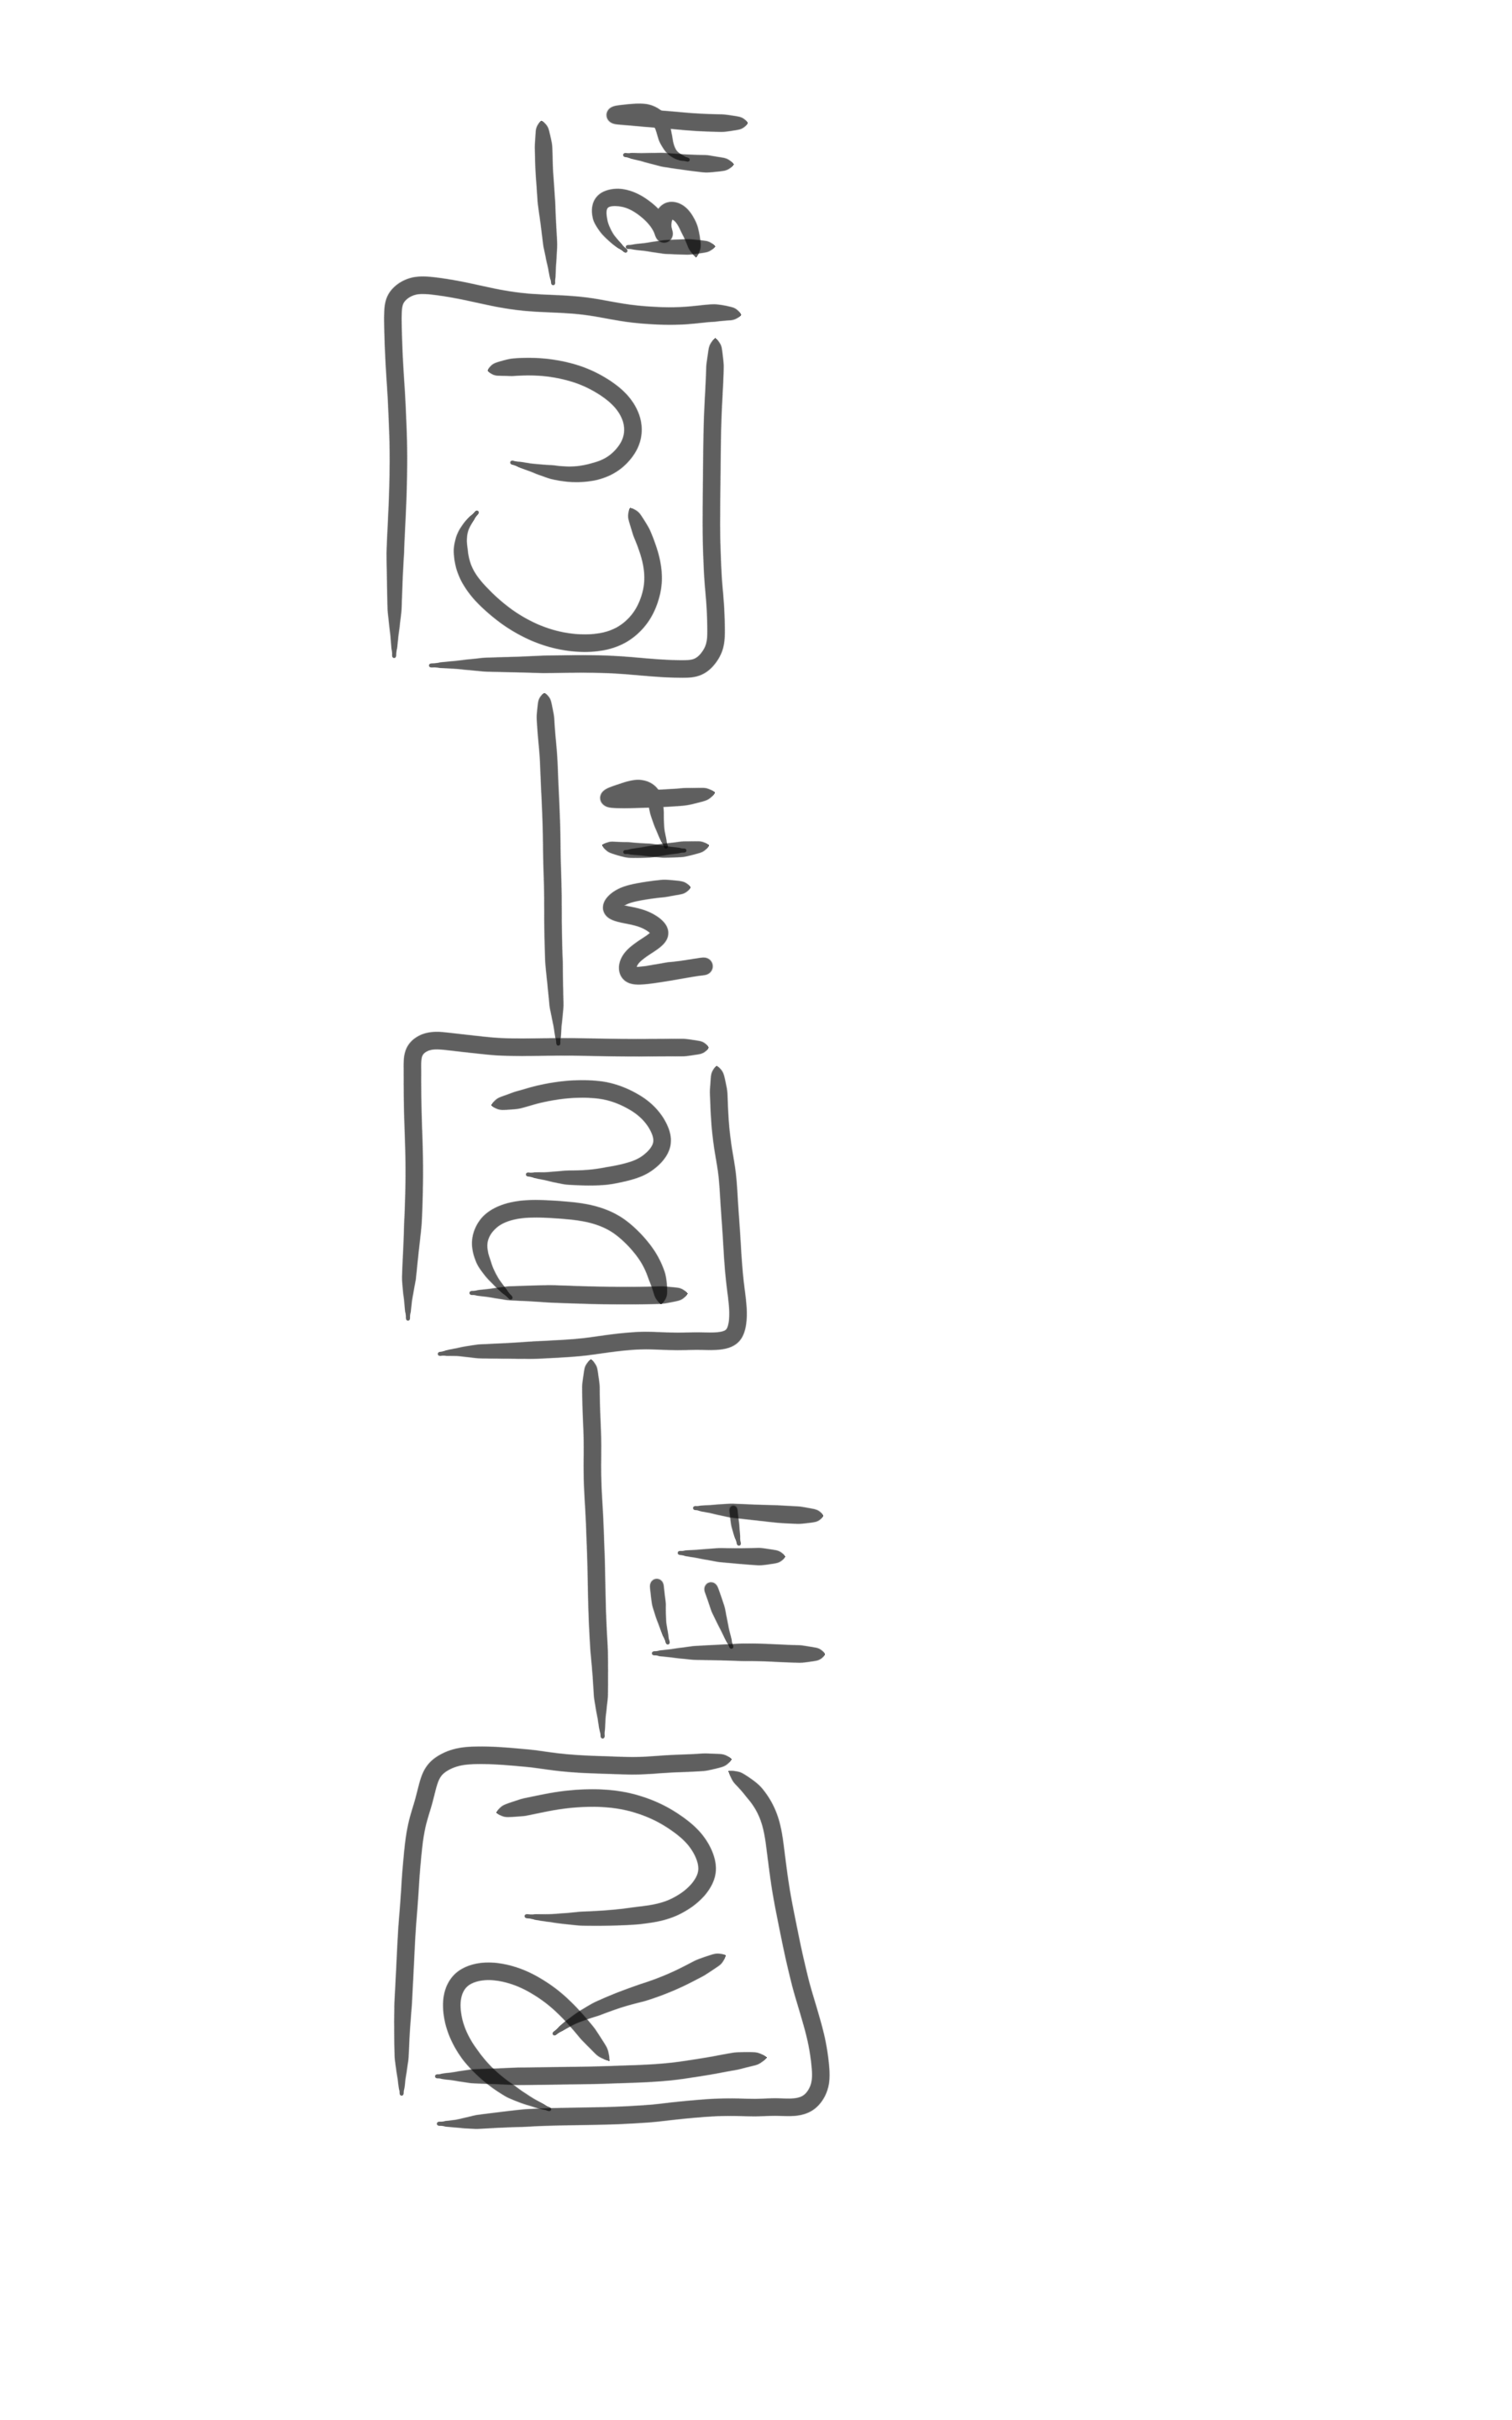 RU FH DU MH CU BH